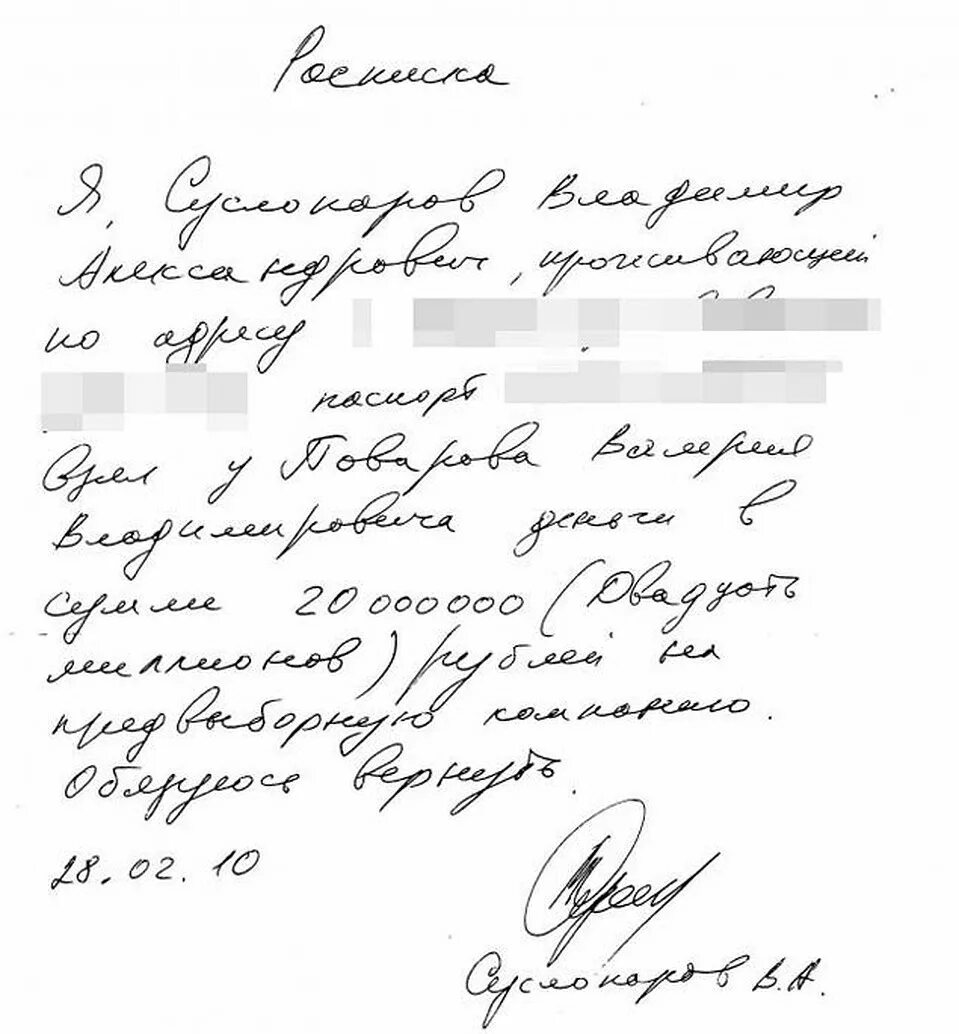 Расписка
Я, Суслопаров Владимир
Александрович, проживающий
по адресу
паспорт
Взял у Поварова Валерия
Владимировича деньги в
сумме 20 000000 (Двадцать
миллионов) рублей на
предвыборную компанию.
Обязуюсь вернуть.
28.02.10
Суслопаров В.А.